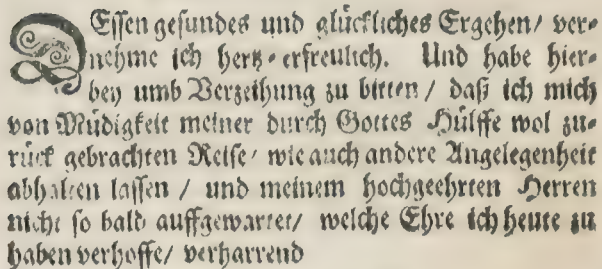 DEssen gesundes und glückliches Ergehen/ ver-
nehme ich hertz-erfreulich. Und habe hier-
bey umb Verzeihung zu bitten / daß ich mich
von Müdigkeit meiner durch Gottes Hülffe wol zu-
rück gebrachten Reise/ wie auch andere Angelegenheit
abhalten lassen / und meinem hochgeehrten Herren
nicht so bald auffgewartet/ welche Ehre ich heute zu
haben verhoffe/ verharrend